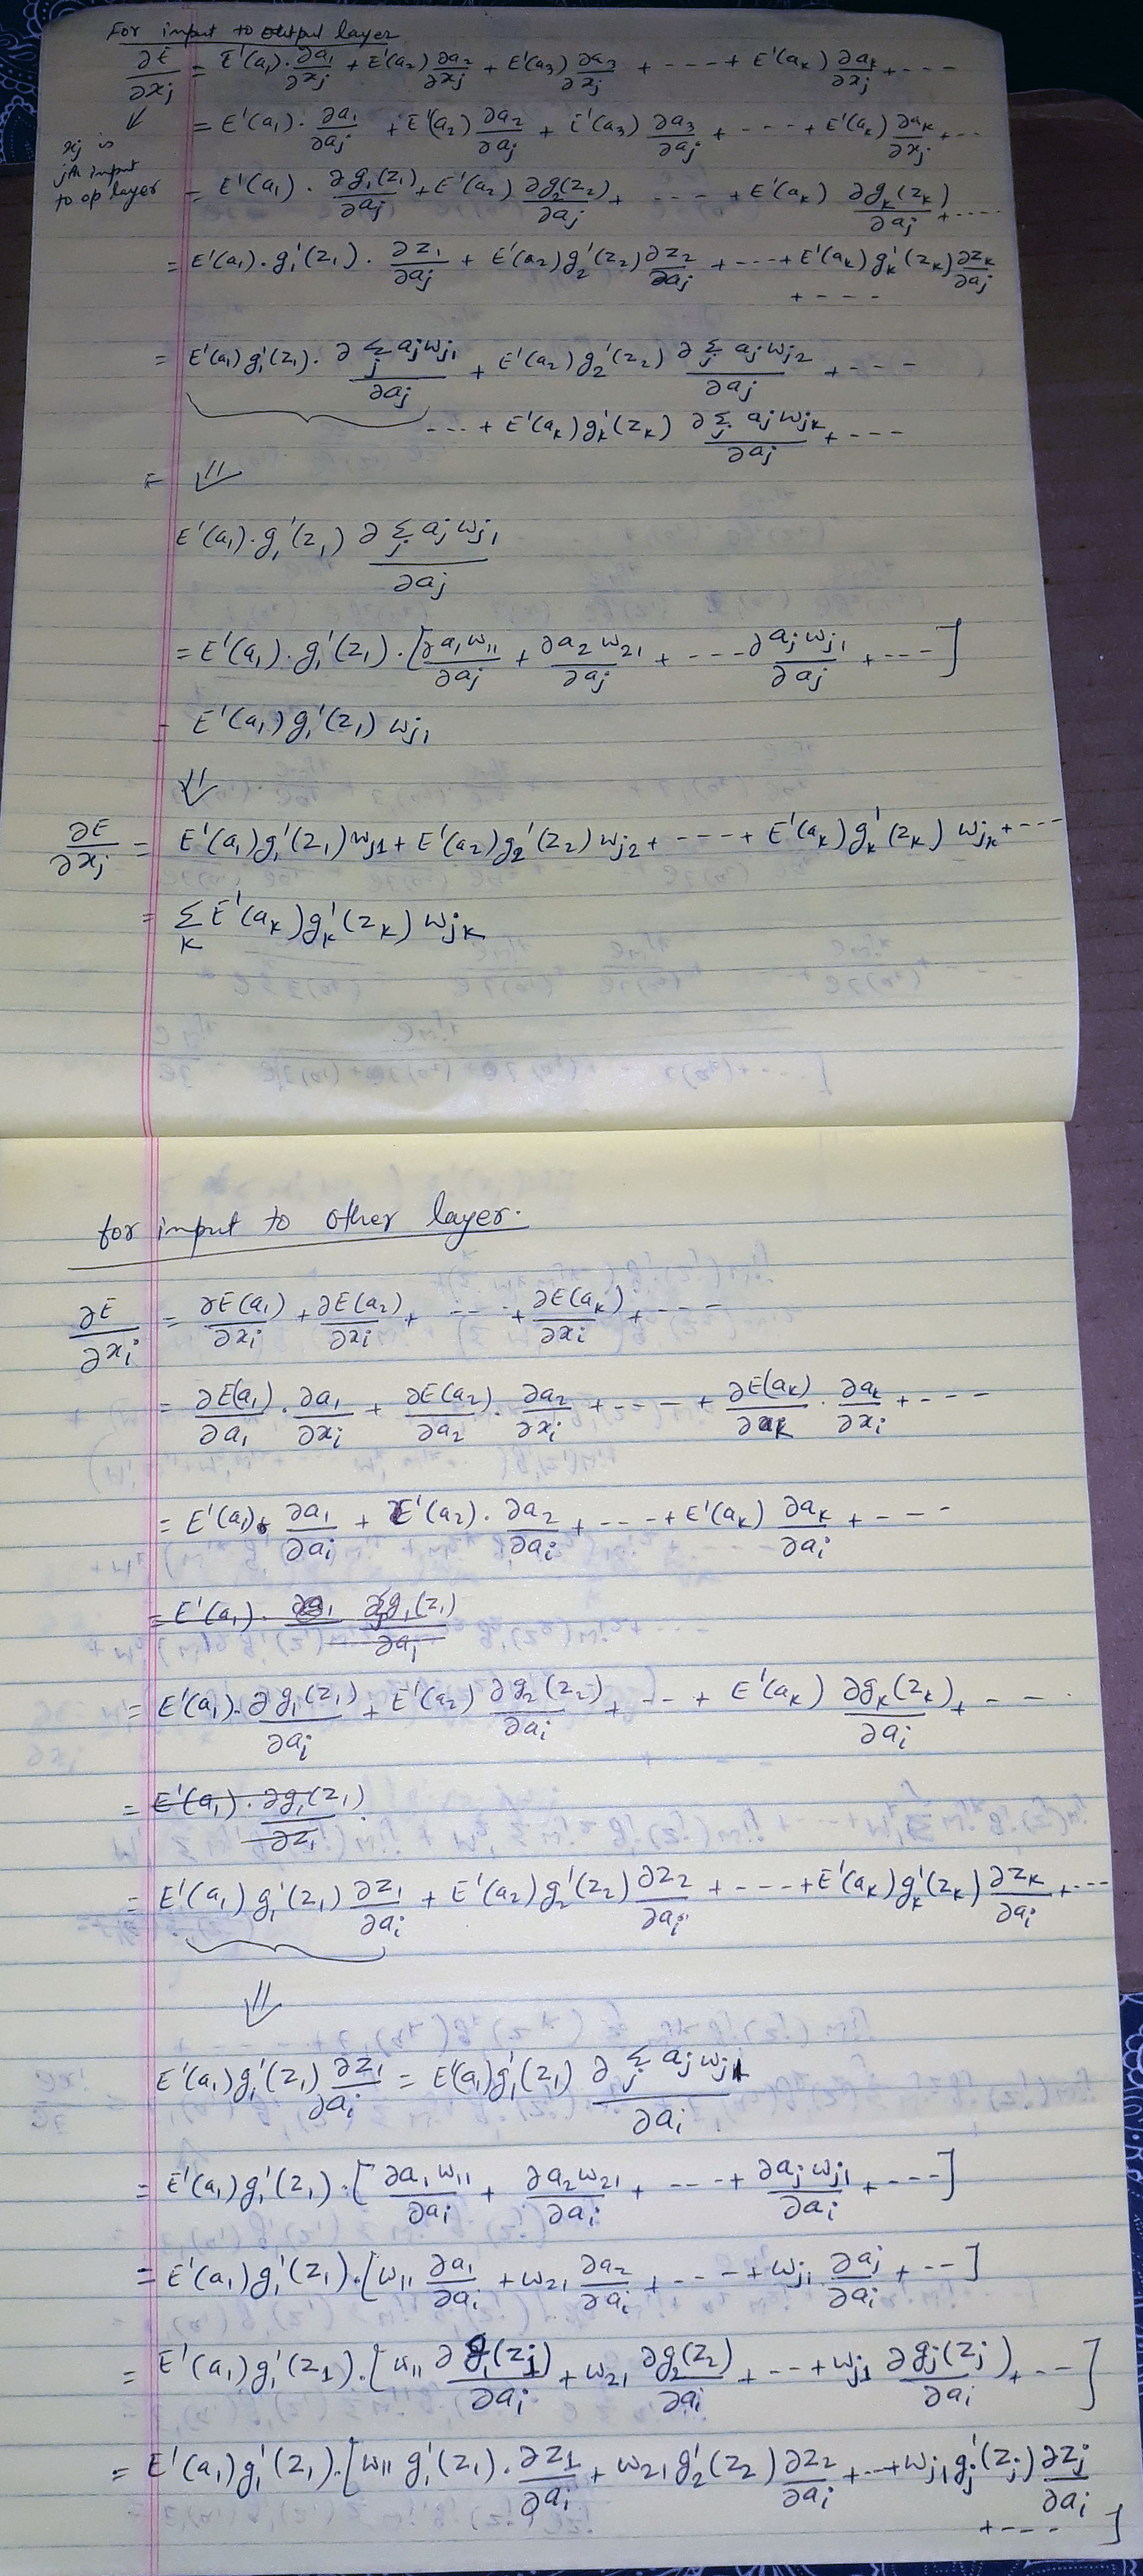 For input to output layer
∂E/∂xj = E'(a1)·∂a1/∂xj + E'(a2) ∂a2/∂xj + E'(a3) ∂a3/∂xj + ---- + E'(ak) ∂ak/∂xj + ---
xj is jth input to op layer
= E'(a1)·∂a1/∂aj + E'(a2) ∂a2/∂aj + E'(a3) ∂a3/∂aj + ---- + E'(ak) ∂ak/∂xj + --
= E'(a1)·∂g1(z1)/∂aj + E'(a2) ∂g2(z2)/∂aj + ---- + E'(ak) ∂gk(zk)/∂aj + ----
= E'(a1)·g1'(z1)·∂z1/∂aj + E'(a2)g2'(z2)∂z2/∂aj + ---- + E'(ak)gk'(zk)∂zk/∂aj
+ ----
= E'(a1)g1'(z1)·∂Σj ajwj1/∂aj + E'(a2)g2'(z2) ∂Σj ajwj2/∂aj + ---
--- + E'(ak)gk'(zk) ∂Σj ajwjk/∂aj + ---
= ⇓
E'(a1)·g1'(z1) ∂Σj ajwj1/∂aj
= E'(a1)·g1'(z1)·[∂a1w11/∂aj + ∂a2w21/∂aj + --- ∂ajwj1/∂aj + ---]
= E'(a1)g1'(z1) wj1
⇓
∂E/∂xj = E'(a1)g1'(z1)wj1 + E'(a2)g2'(z2)wj2 + ---- + E'(ak)gk'(zk) wjk + ---
= Σk E'(ak)gk'(zk) wjk
for input to other layer.
∂E/∂xi = ∂E(a1)/∂xi + ∂E(a2)/∂xi + ---- + ∂E(ak)/∂xi + ---
= ∂E(a1)/∂a1·∂a1/∂xi + ∂E(a2)/∂a2·∂a2/∂xi + --- + ∂E(ak)/∂ak·∂ak/∂xi + ---
= E'(a1)·∂a1/∂ai + E'(a2)·∂a2/∂ai + --- + E'(ak) ∂ak/∂ai + --
= E'(a1)· ∂g1(z1)/∂ai
= E'(a1)·∂g1(z1)/∂ai + E'(a2) ∂g2(z2)/∂ai + --- + E'(ak) ∂gk(zk)/∂ai + --
= E'(a1)·∂g1(z1)/∂z1
= E'(a1)g1'(z1)∂z1/∂ai + E'(a2)g2'(z2)∂z2/∂ai + ---- + E'(ak)gk'(zk)∂zk/∂ai + ---
⇓
E'(a1)g1'(z1)∂z1/∂ai = E'(a1)g1'(z1) ∂Σj ajwj1/∂ai
= E'(a1)g1'(z1)·[∂a1w11/∂ai + ∂a2w21/∂ai + ---- + ∂ajwj1/∂ai + ---]
= E'(a1)g1'(z1)·[w11 ∂a1/∂ai + w21 ∂a2/∂ai + ---- + wj1 ∂aj/∂ai + --]
= E'(a1)g1'(z1)·[w11 ∂g1(z1)/∂ai + w21 ∂g2(z2)/∂ai + --- + wj1 ∂gj(zj)/∂ai + --]
= E'(a1)g1'(z1)·[w11 g1'(z1)·∂z1/∂ai + w21g2'(z2)∂z2/∂ai + --- + wj1gj'(zj)∂zj/∂ai
+ ---- ]